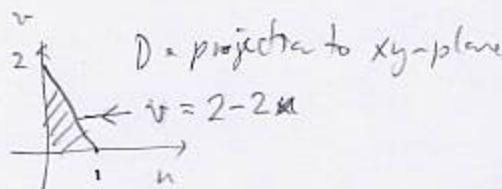 v
2
D = projection to xy-plane
v = 2-2u
1
u